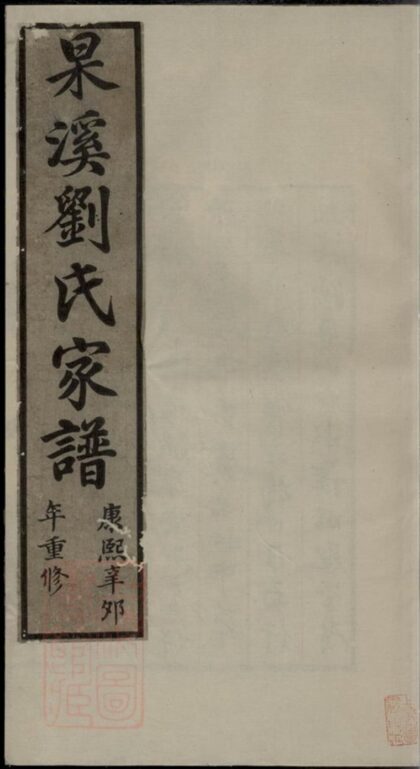 杲溪劉氏家譜
康熙辛卯
年重修
圖